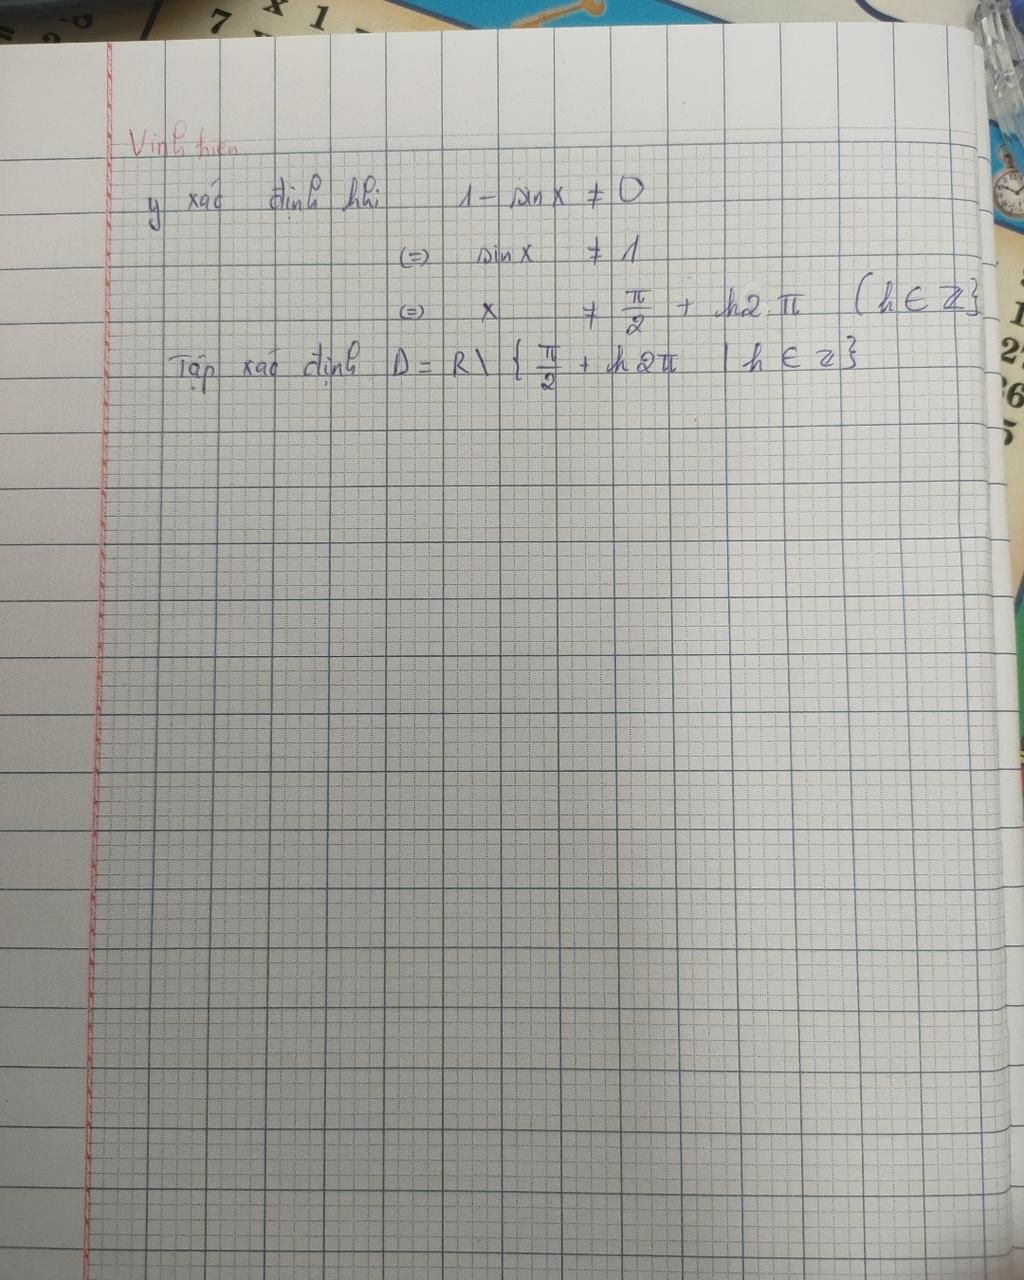 7 x 1
Vinh hiên
y xác định khi 1 - sin x ≠ 0
(=) sin x ≠ 1
(=) x ≠ π/2 + k2.π (k ∈ Z}
Tập xác định D = R \ { π/2 + k2π | k ∈ z}